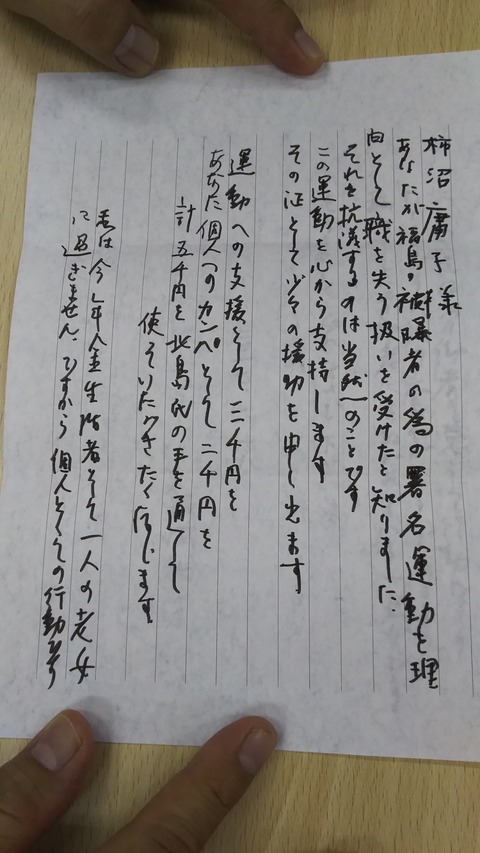 柿沼庸子様
あなたが福島・被曝者の為の署名運動を理
由として職を失う扱いを受けたと知りました、
それを抗議するのは当然のことです
この運動を心から支持します
その証として少々の援助を申し出ます
運動への支援として三千円を
あなた個人へのカンパとして二千円を
計五千円を北島氏の手を通して
使っていただきたく存じます
私は今年金生活者として一人の老女
に過ぎません、ですから個人としての行動です